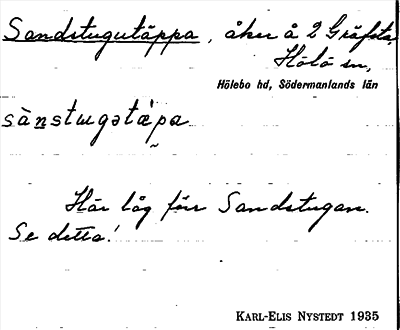 Sandstugutäppa, åker å 2 Gräfsta,
Hölö sn,
Hölebo hd, Södermanlands län
sànstugətä̀pa
Här låg förr Sandstugan.
Se detta!
KARL-ELIS NYSTEDT 1935